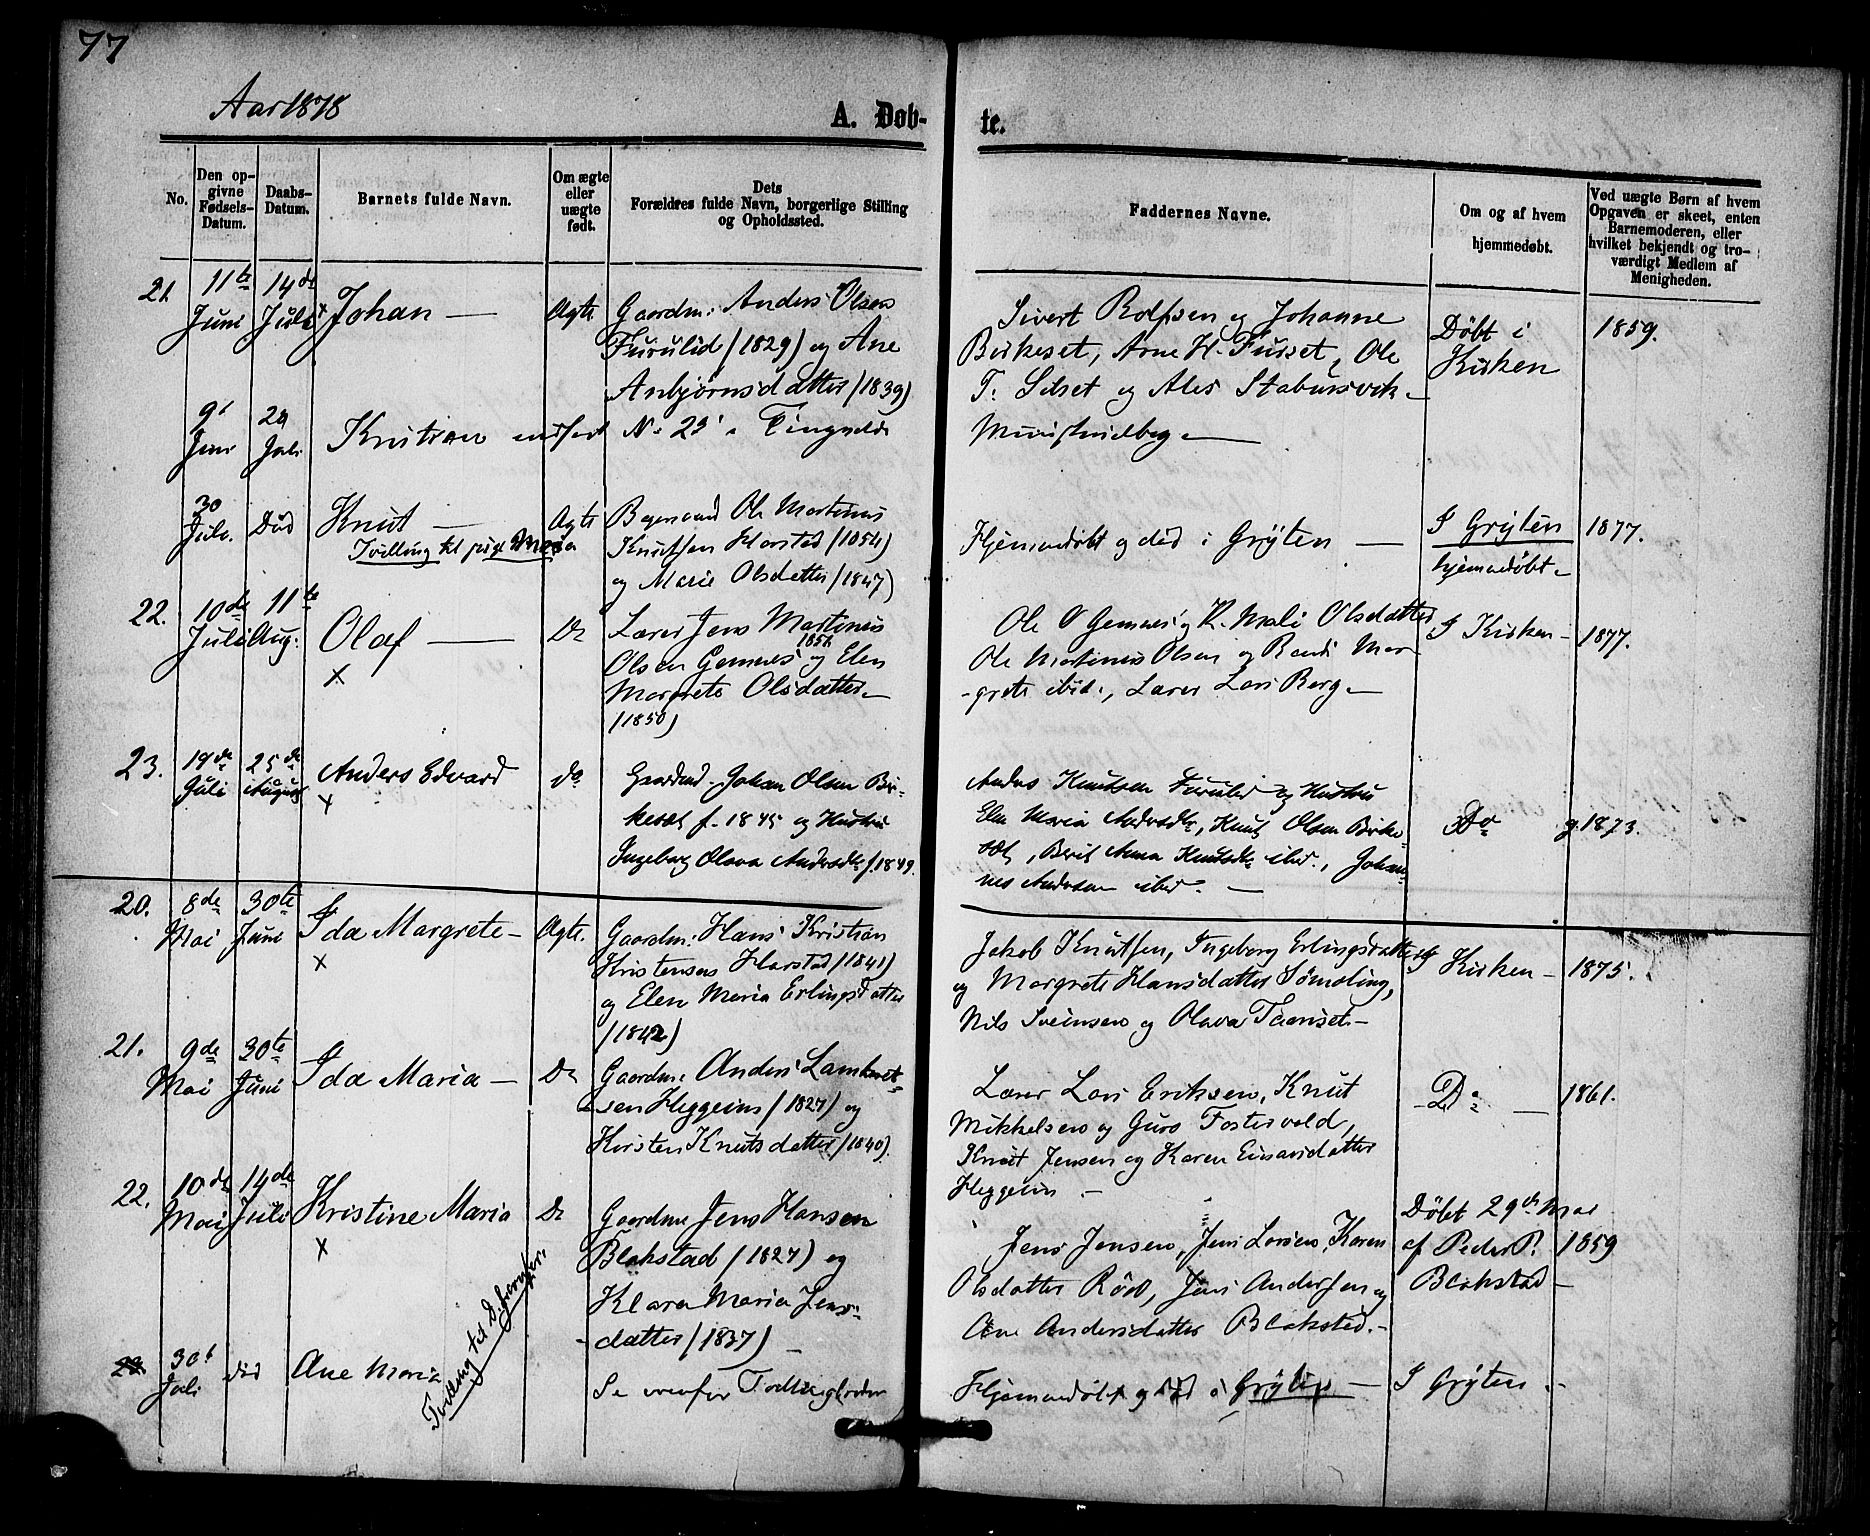 77
Aar 1878
A. Døb-
te.
No.
Den op-
givne
Fødsels-
Datum.
Daabs-
Datum.
Barnets fulde Navn.
Om ægte
eller
uægte
født.
Dets
Forældres fulde Navn, borgerlige Stilling
og Opholdssted.
Faddernes Navne.
Om og af hvem
hjemmedøbt.
Ved uægte Børn af hvem
Opgaven er skeet, enten
Barnemoderen, eller
hvilket bekjendt og tro-
værdigt Medlem af
Menigheden.
21.
11te
Juni
14de
Juli
Johan —
Ægte
Gaardm: Anders Olsen
Furulid (1829) og Ane
Anbjørnsdatter (1839)
Sivert Rolfsen og Johanne
Birkeset, Arne H. Furset, Ole
T. Silset og Ales Stabursvik
Døbt i
Kirken
1859.
9'
Juni
Juli
Kristian indført
No 23
30
Juli.
Død
Knut —
Tvilling til pige Maria
Ægte
Ole Martinus
Knutsen Harstad (1854)
og Marie Olsdatter (1847)
Hjemmedøbt og død i Grÿten —
I Grÿten
hjemmedøbt —
1877.
22.
10de
Juli
11te
Aug.
Olaf —
x
Do
Lærer Jens Martinus
1856
Olsen Gemnes og Elen
Margrete Olsdatter —
(1850)
Ole O Gemnes og K. Mali Olsdatter
Ole Martinus Olsen og Randi Mar-
-grete ibid., Lærer Lars Berg —
I Kirken —
1877.
23.
19de
Juli
25de
August
Anders Edvard
x
do
Gaardmd. Johan Olsen Bir-
keset f. 1845 og Hustru
Ingeborg Olava Andersdtr f. 1849.
Anders Knutsen Furulid og Hustru
Elen Maria Andersdtr, Knut Olsen Birke-
sæt, Berit Anna Knutsdtr ibid., Johan-
nes Andersen ibid. —
Do
g. 1873.
20.
8de
Mai
30te
Juni
Ida Margrete —
x
Ægte.
Gaardm: Hans Kristian
Kristensen Harstad (1841)
og Elen Maria Erlingsdatter
(1842)
Jakob Knutsen, Ingeborg Erlingsdatter
og Margrete Hansdatter Sømoling,
Nils Sveinsen og Olava Tarset —
I Kirken —
1875.
21.
9de
Mai
30te
Juni
Ida Maria —
Do
Gaardm: Anders Lambret-
sen Heggeim (1827) og
Kirsten Knutsdatter (1840).
Lærer Lars Eriksen, Knut
Mikkelsen og Guro Fostervold,
Knut Jensen og Karen Einarsdatter
Heggeim —
Do —
1861.
22.
10de
Mai
14de
Juli
Kristine Maria
x
Do
Gaardm Jens Hansen
Blakstad (1827) og
Klara Maria Jens-
datter (1837) —
Jens Jensen, Jens Larsen, Karen
Olsdatter Rød, Jens Andersen og
Ane Andersdatter Blakstad. —
Døbt 29de Mai
af Peder P.
Blakstad —
1859
30'
Juli
død
Ane Maria
Tvilling til
Se ovenfor
Hjemmedøbt og død i Grÿten —
I Grÿten —